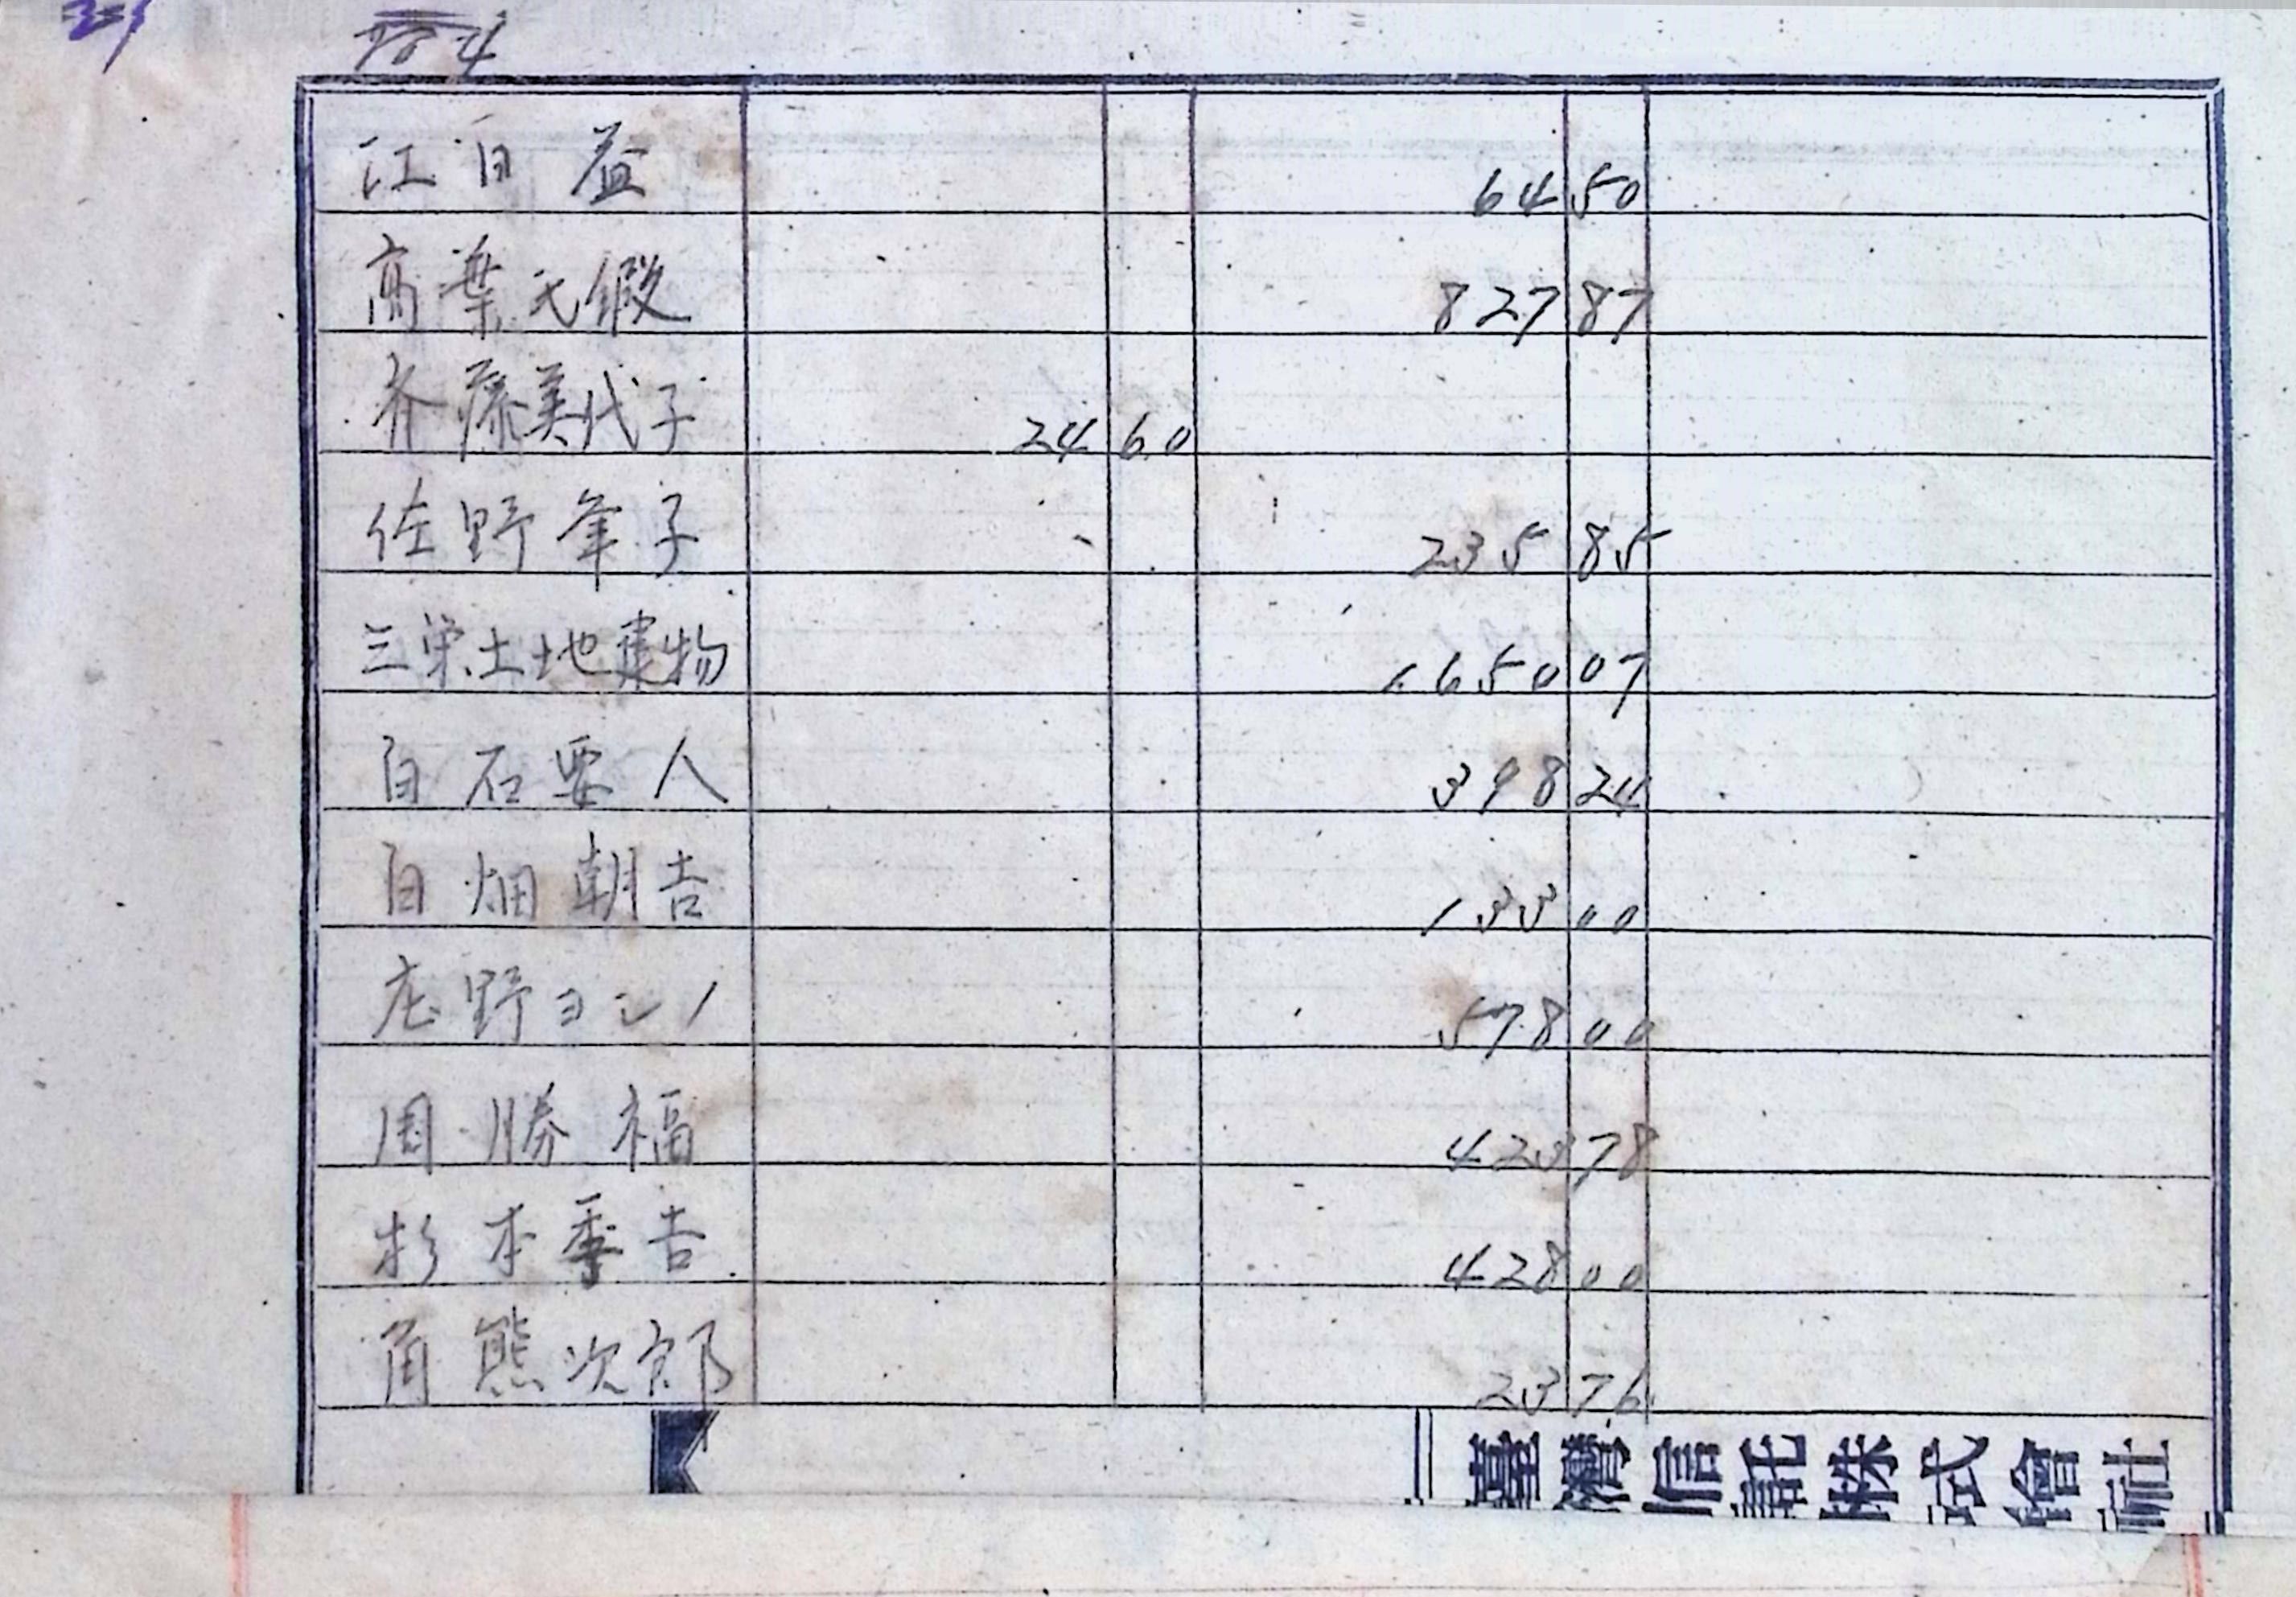 江自益 64 50
高葉氏緞 827 87
斉藤美代子 24 60
佐野峯子 235 85
三栄土地建物 1650 07
白石要人 398 24
白畑朝吉 133 00
庄野ヨシノ 578 00
周勝福 423 78
杉本季吉 428 00
角熊次郎 23 76
臺灣信託株式會社